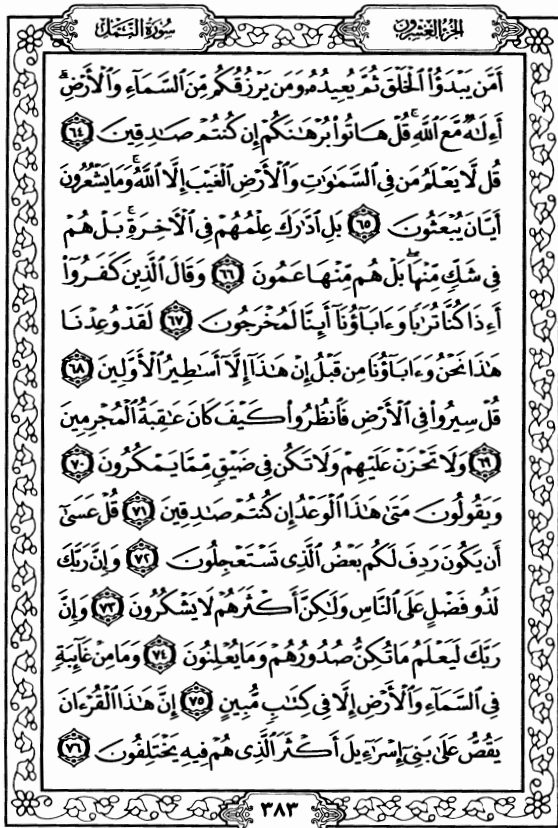 الجزء العشرون
سورة النمل
أَمَّن يَبْدَؤُاْ ٱلْخَلْقَ ثُمَّ يُعِيدُهُۥ وَمَن يَرْزُقُكُم مِّنَ ٱلسَّمَآءِ وَٱلْأَرْضِۗ
أَءِلَٰهٌ مَّعَ ٱللَّهِۚ قُلْ هَاتُواْ بُرْهَٰنَكُمْ إِن كُنتُمْ صَٰدِقِينَ ٦٤
قُل لَّا يَعْلَمُ مَن فِى ٱلسَّمَٰوَٰتِ وَٱلْأَرْضِ ٱلْغَيْبَ إِلَّا ٱللَّهُۚ وَمَا يَشْعُرُونَ
أَيَّانَ يُبْعَثُونَ ٦٥ بَلِ ٱدَّٰرَكَ عِلْمُهُمْ فِى ٱلْأَخِرَةِۚ بَلْ هُمْ
فِى شَكٍّ مِّنْهَاۖ بَلْ هُم مِّنْهَا عَمُونَ ٦٦ وَقَالَ ٱلَّذِينَ كَفَرُوٓاْ
أَءِذَا كُنَّا تُرَٰبًا وَءَابَآؤُنَآ أَئِنَّا لَمُخْرَجُونَ ٦٧ لَقَدْ وُعِدْنَا
هَٰذَا نَحْنُ وَءَابَآؤُنَا مِن قَبْلُ إِنْ هَٰذَآ إِلَّآ أَسَٰطِيرُ ٱلْأَوَّلِينَ ٦٨
قُلْ سِيرُواْ فِى ٱلْأَرْضِ فَٱنظُرُواْ كَيْفَ كَانَ عَٰقِبَةُ ٱلْمُجْرِمِينَ
٦٩ وَلَا تَحْزَنْ عَلَيْهِمْ وَلَا تَكُن فِى ضَيْقٍ مِّمَّا يَمْكُرُونَ ٧٠
وَيَقُولُونَ مَتَىٰ هَٰذَا ٱلْوَعْدُ إِن كُنتُمْ صَٰدِقِينَ ٧١ قُلْ عَسَىٰٓ
أَن يَكُونَ رَدِفَ لَكُم بَعْضُ ٱلَّذِى تَسْتَعْجِلُونَ ٧٢ وَإِنَّ رَبَّكَ
لَذُو فَضْلٍ عَلَى ٱلنَّاسِ وَلَٰكِنَّ أَكْثَرَهُمْ لَا يَشْكُرُونَ ٧٣ وَإِنَّ
رَبَّكَ لَيَعْلَمُ مَا تُكِنُّ صُدُورُهُمْ وَمَا يُعْلِنُونَ ٧٤ وَمَا مِنْ غَآئِبَةٍ
فِى ٱلسَّمَآءِ وَٱلْأَرْضِ إِلَّا فِى كِتَٰبٍ مُّبِينٍ ٧٥ إِنَّ هَٰذَا ٱلْقُرْءَانَ
يَقُصُّ عَلَىٰ بَنِىٓ إِسْرَٰٓءِيلَ أَكْثَرَ ٱلَّذِى هُمْ فِيهِ يَخْتَلِفُونَ ٧٦
٣٨٣